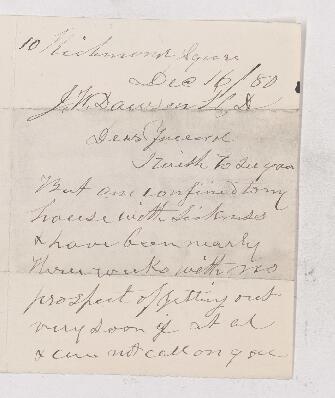 10 Richmond Square
Dec 16/80
J. W. Dawson LL D
Dear Friend
I wish to see you
But am confined to my
house with Sickness
& have been nearly
three weeks with no
prospect of getting out
very soon if at al
& can not call on you